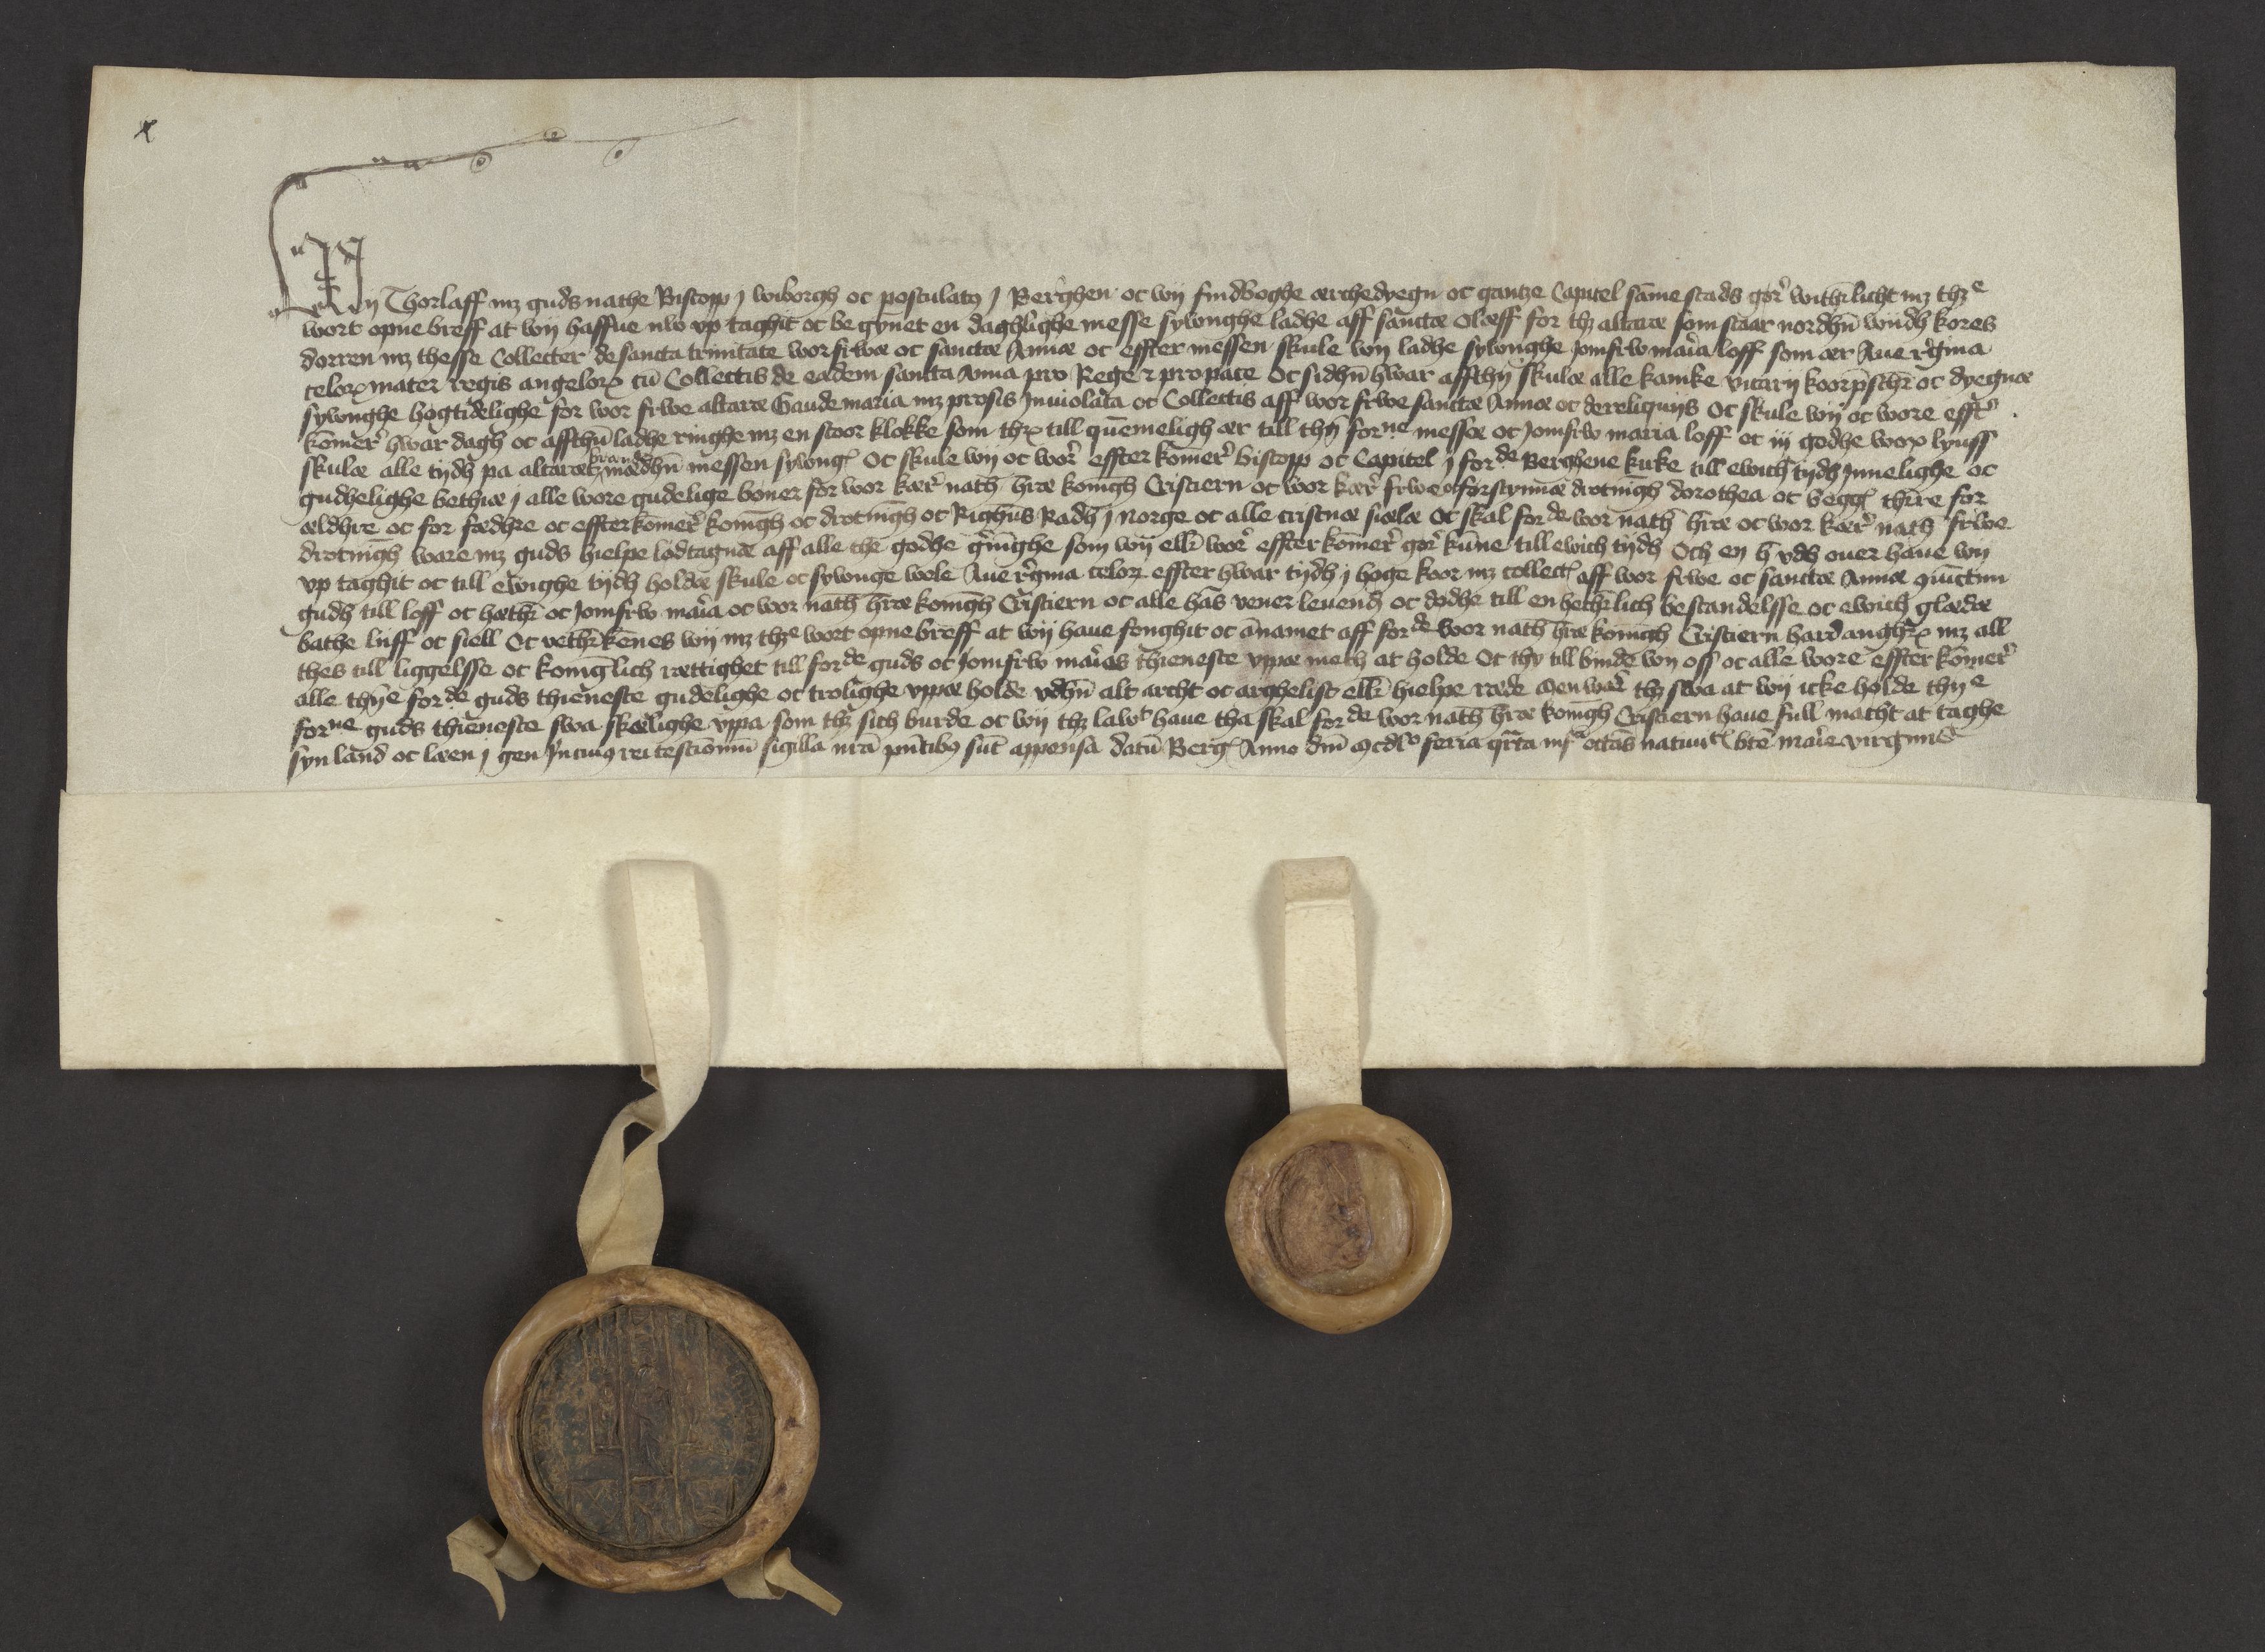 x
Wij Thorlaff mz guds nathe Biscopp j wiborgh oc postulatꝫ j Berghen oc wij findboghe ærchedyegn oc gantze Capitel sāme stads gør̉ with̄licht mz thꝫͤ
wort opne breff at wij haffue nw vp taghit oc begynet en daghlighe messe sywnghe ladhe aff sanctæ Olæff for thꝫ altaræ som staar nordhn̄ wiidh kores
dorren mz thesse Collecter de sancta trinitate worfrwæ oc sanctæ Annæ oc effter messen skule wij ladhe sywnghe jomfrw mar̉ia loff som ær Aue r̉gina
celoꝝ mater regis angeloꝝ cū Collectis de eadem sancta Anna pro Rege ⁊ pro pace Oc sidhn̄ hwar affthn̄ skulæ alle kanike vicarij koorp̄sth̄r oc dyegnæ
sywnghe høgtidelighe for wor frwe altaræ Gaude maria mz prosis Inuiolata oc Collectis aff wor frwe sanctæ Annæ oc de reliquijs Oc skule wij oc wore efft̉
kōmer̉ hwar dagh oc affthn̄ ladhe ringhe mz en stoor klokke som thꝝ till quēmeligh ær till thn̄ forⁿᵉ messæ oc jomfrw maria loff oc iij godhe woꝝ lyuss
skulæ alle tijdh pa altaræt brænæ mædhn̄ messen sywngꝭ Oc skule wij oc wor̉ effter kōmer̉ biscopp oc Capitel j forᵈᵉ Berghene kirke till ewich tijdh Jnnelighe oc
gudhelighe bethiæ j alle wore gudelige bøner for wor kær̉ nath̄ h̄ræ konīgh Cristiern oc wor kær̉ frwe oc forstynnæ drotnīgh dorothea oc beggꝭ thīre for
ældhre oc for fædhre oc effterkōmer̉ konīgh oc drotnīgh oc Righn̄s Radh j Norge oc alle cristnæ siælæ Oc skal forᵈᵉ wor nath̄ h̄ræ oc wor kær̉ nath̄ frwe
drotnīgh ware mz guds hielpe lodtagnæ aff alle the godhe gr̄nīghe som wij ell̄ wor̉ effter kōmer̉ gør̉ kūne till ewich tijdh Och en h̄ vdh ouer haue wij
vp taghit oc till ewighe tijdh holdæ skule oc sywnge wele Aue r̉gina celoꝝ effter hwar tijdh j høge koor mz collectꝭ aff wor frwe oc sanctæ Annæ
gudh till loff oc hæth̄r oc Jomfrw mar̉ia oc wor nath̄ h̄ræ konīgh Cristiern oc alle hās vener leuendꝭ oc dødhe till en hethr̄lich bestandelsse oc ewich glædæ
bathe lijff oc siell Oc vethr̄kēnes wij mz thꝫͤ wort opne breff at wij haue fonghit oc ānamet aff forᵈᵉ wor nath̄ h̄ræ konīgh Cristiern hardangh̄ꝝ mz all
thes till liggelsse oc konīglich rættighet till forᵈᵉ guds oc Jomfrw mar̉ias thieneste vppæ meth at holde Oc thy till bindē wij oss oc alle wore effter kōmer̉
alle thn̄ͤ forᵈᵉ guds thieneste gudelighe oc trolighe vppæ holde vdhn̄ alt archt oc arghelist ell̄ hielpe ræde Men war̉ thꝫ swa at wij icke holde thn̄ͤ
forⁿᵉ guds thieneste swa skælighe vppa som thꝫ sich burde oc wij thꝫ lawᵗ haue tha skal forᵈᵉ wor nath̄ h̄ræ konīgh Cristiern haue full macht at taghe
syn land oc læen j gen Jn cuiꝰ rei testiōniū sigilla nr̄a pn̄tibꝫ sūt appensa datū Bergꝭ Anno dn̄i Mcdlͦ feria qr̄ta infͣ octās natiuitꝭ bt̄e mar̉ie virginis